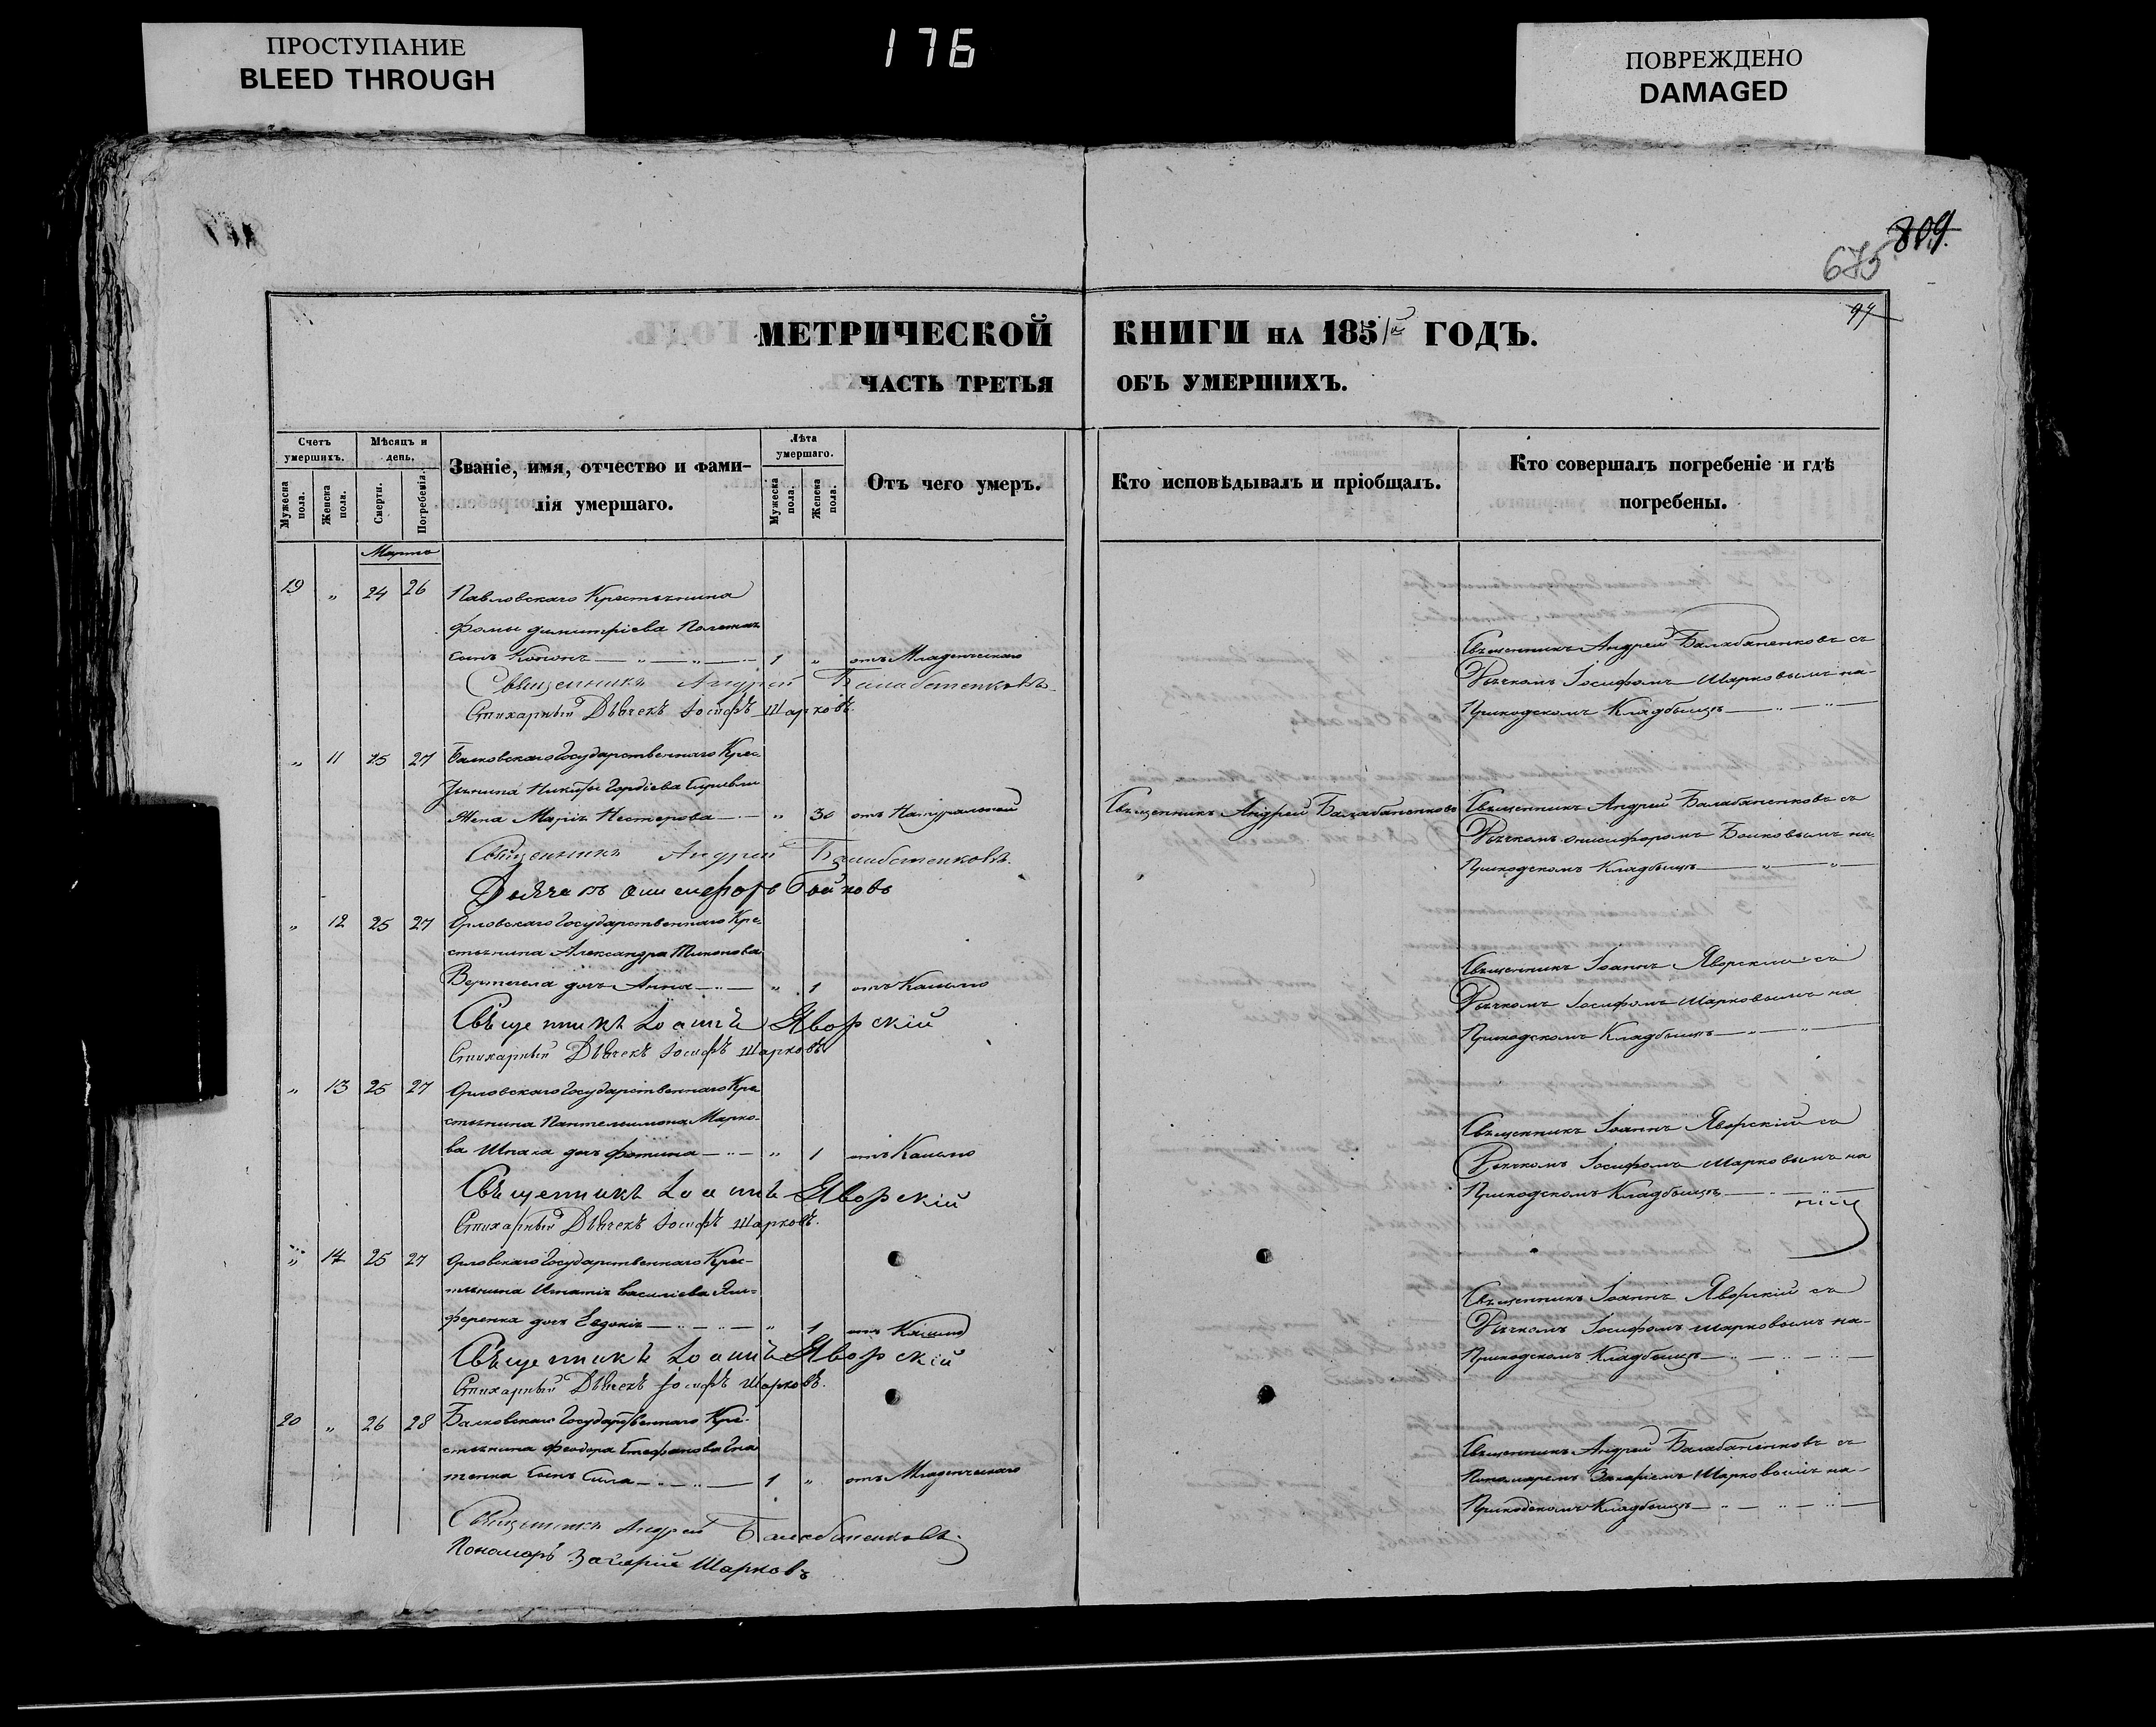 ПРОСТУПАНИЕ
BLEED THROUGH
176
ПОВРЕЖДЕНО
DAMAGED
809.
685
97
МЕТРИЧЕСКОЙ КНИГИ НА 1851й ГОДЪ.
ЧАСТЬ ТРЕТЬЯ ОБЪ УМЕРШИХЪ.
Счетъ умершихъ.
Мужеска пола.
Женска пола.
Мѣсяцъ и день.
Смерти.
Погребенія.
Званіе, имя, отчество и фами-
лія умершаго.
Лѣта умершаго.
Мужеска пола.
Женска пола.
Отъ чего умеръ.
Кто исповѣдывалъ и пріобщалъ.
Кто совершалъ погребеніе и гдѣ
погребены.
Мартъ
19 " 24 26 Павловскаго Крестьянина
Фомы Димитріева
сынъ Кононъ 1 " отъ Младенческаго
Священникъ Андрей Балабаненковъ съ
Дьячкомъ Іосифомъ Шарковымъ на
Приходскомъ Кладбищѣ
Священникъ Андрей Балабаненковъ
Стихарный Дьячекъ Іосифъ Шарковъ
" 11 25 27 Балковскаго Государственнаго Крес-
тьянина Гордіева
Жена Марія Нестерова " 30 отъ Натуральной
Священникъ Андрей Балабаненковъ
Священникъ Андрей Балабаненковъ съ
Дьячкомъ Онисифоромъ Бойковымъ на
Приходскомъ Кладбищѣ
Священникъ Андрей Балабаненковъ
Дьячекъ Онисифоръ Бойковъ
" 12 25 27 Орловскаго Государственнаго Кре-
стьянина Александра Тихонова
дочь Анна " 1 отъ Кашлю
Священникъ Іоаннъ Яворскій съ
Дьячкомъ Іосифомъ Шарковымъ на
Приходскомъ Кладбищѣ
Священникъ Іоаннъ Яворскій
Стихарный Дьячекъ Іосифъ Шарковъ
" 13 25 27 Орловскаго Государственнаго Кре-
стьянина Пантелеимона Марко-
ва Шпака дочь Фотина " 1 отъ Кашлю
Священникъ Іоаннъ Яворскій съ
Дьячкомъ Іосифомъ Шарковымъ на
Приходскомъ Кладбищѣ
Священникъ Іоаннъ Яворскій
Стихарный Дьячекъ Іосифъ Шарковъ.
" 14 25 27 Орловскаго Государственнаго Крес-
тьянина Игнатія Василіева
дочь Евдокія " 1 отъ Кашлю
Священникъ Іоаннъ Яворскій съ
Дьячкомъ Іосифомъ Шарковымъ на
Приходскомъ Кладбищѣ
Священникъ Іоаннъ Яворскій
Стихарный Дьячекъ Іосифъ Шарковъ.
20 " 26 28 Балковскаго Государственнаго Кре-
стьянина Феодора Стефанова
Сынъ Сила 1 " отъ Младенческаго
Священникъ Андрей Балабаненковъ съ
Пономаремъ Захаріемъ Шарковымъ на
Приходскомъ Кладбищѣ
Священникъ Андрей Балабаненковъ
Пономарь Захарій Шарковъ